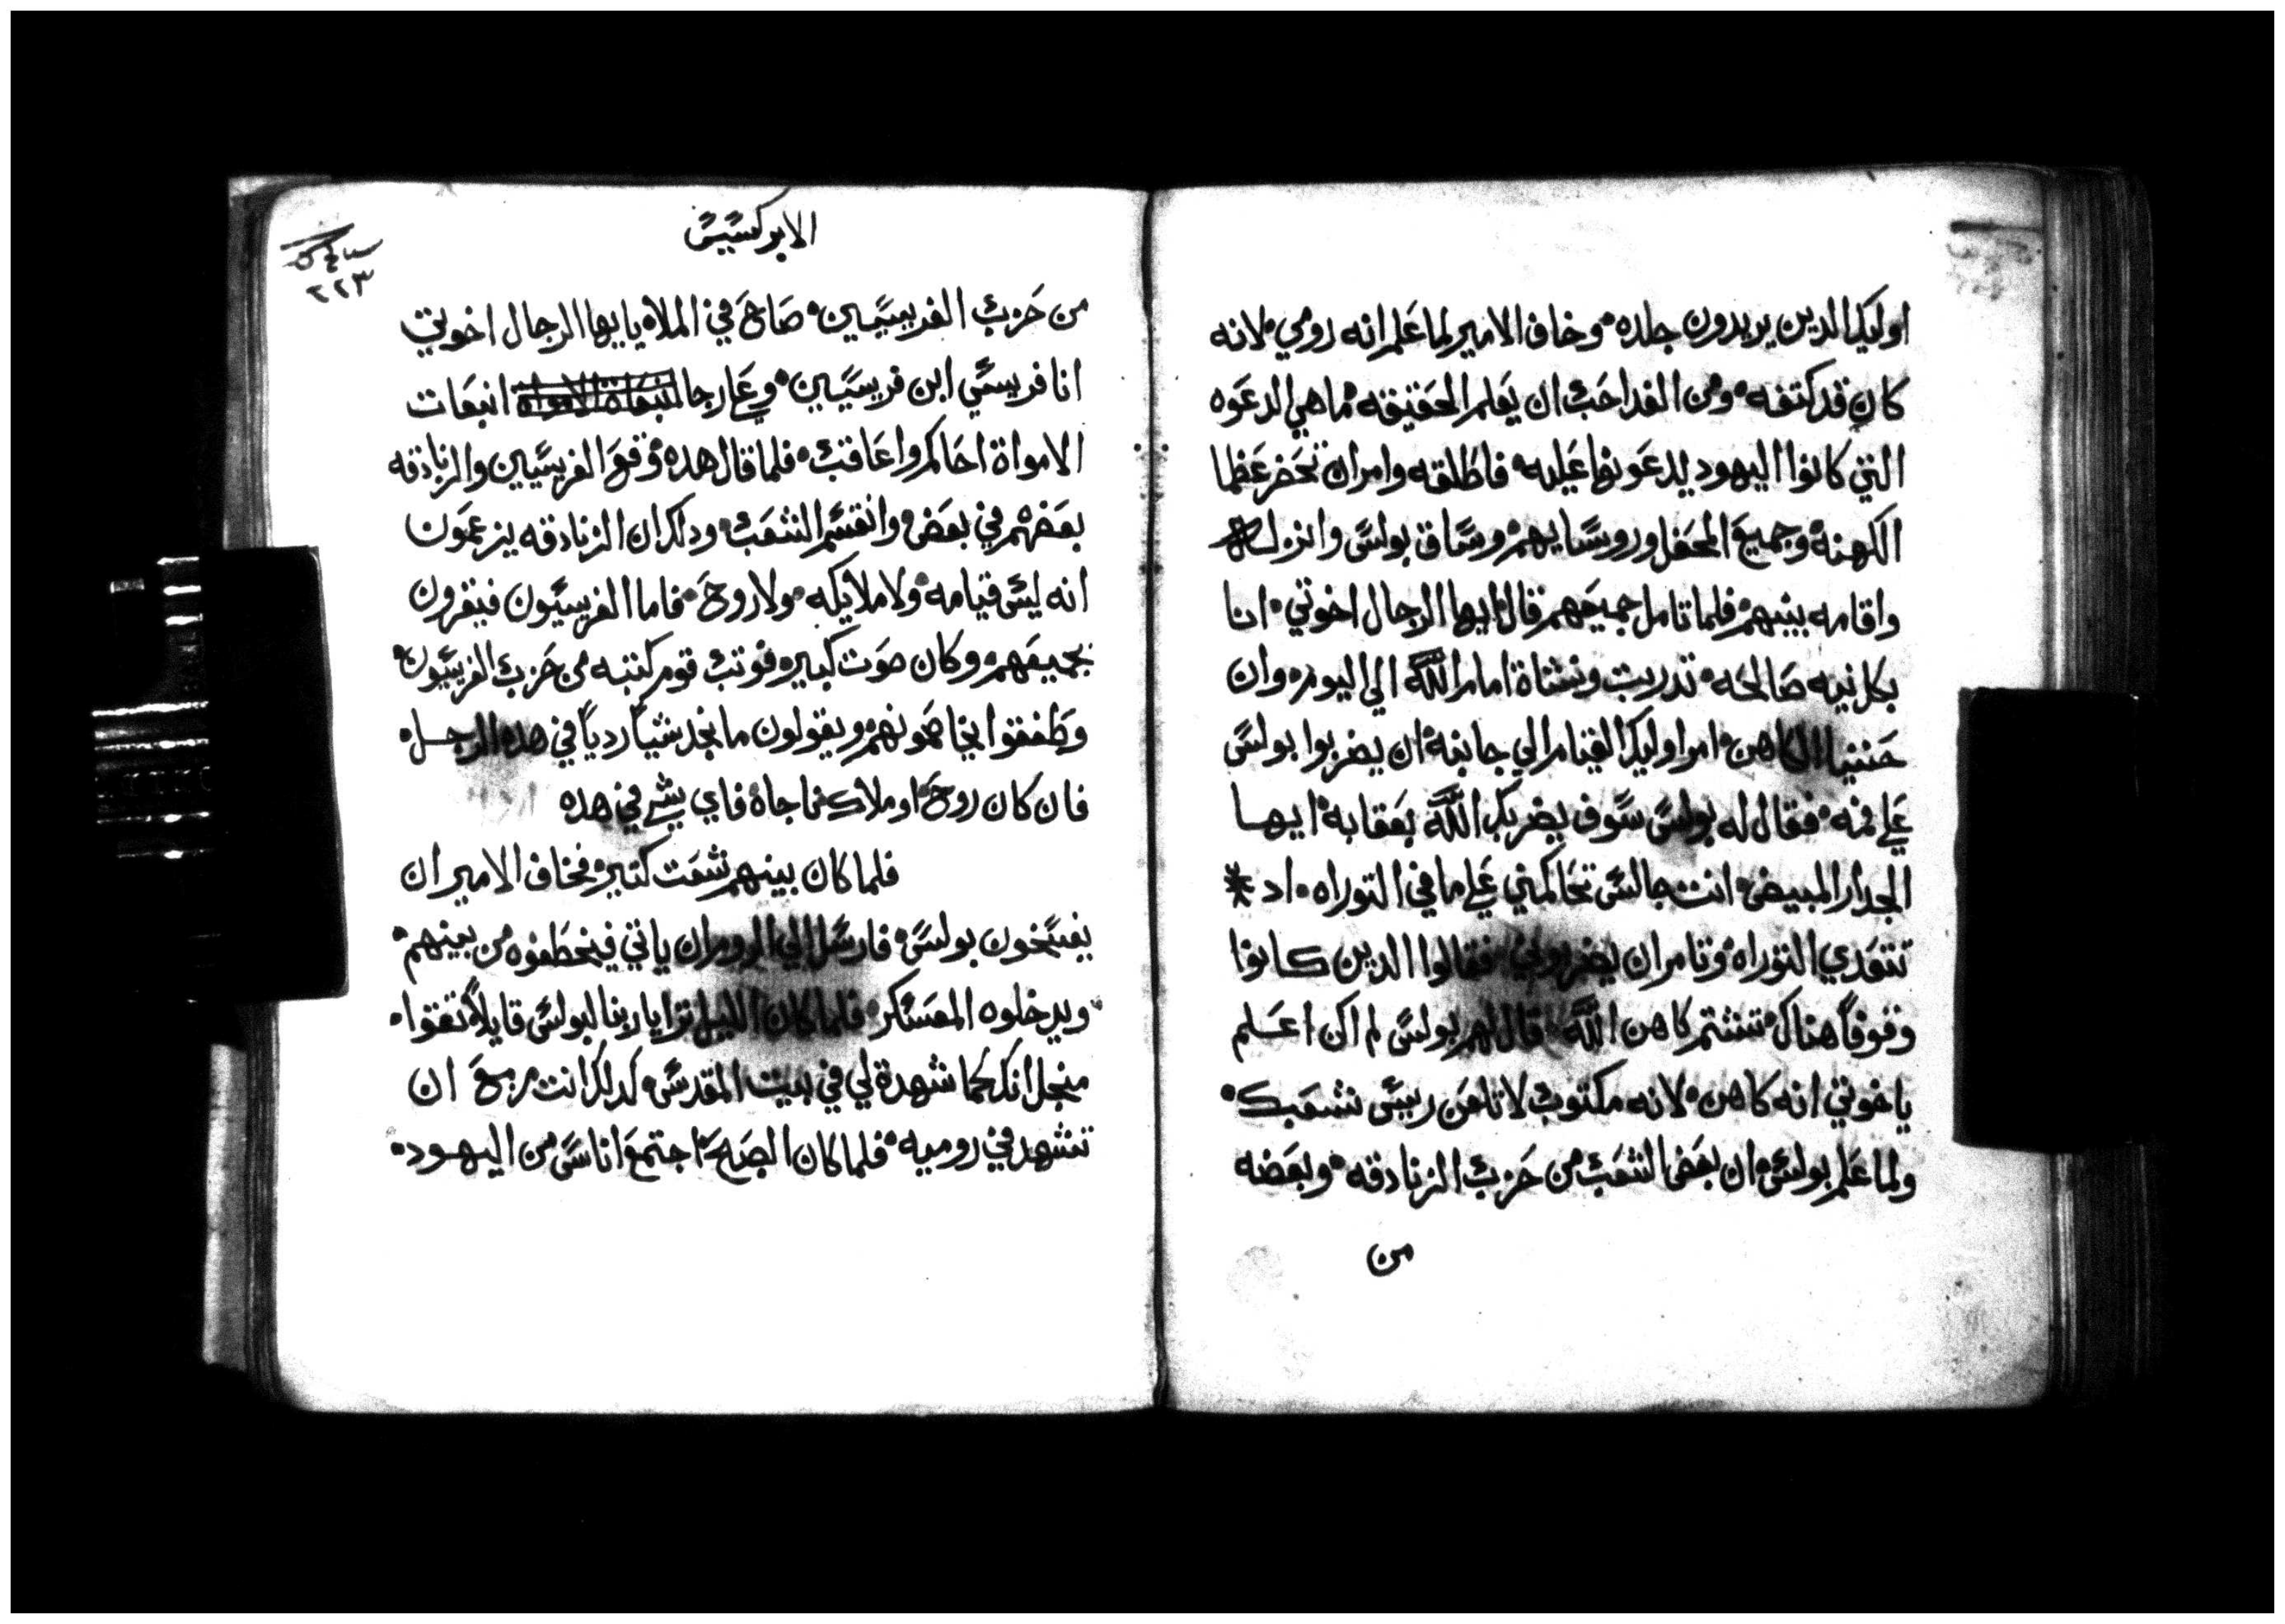 اوليك الدين يريدون جلده۰ وخاف الامير لما علم انه رومي۰ لانه
كان قد كتفه۰ ومن الغد احب ان يعلم الحقيقه۰ ما هي الدعوه
التي كانوا اليهود يدعونها عليه۰ فاطلقه وامر ان تحضر عظما
الكهنة وجميع المحفل وروسايهم۰ وساق بولس وانزله
واقامه بينهم۰ فلما تامل جميعهم قال ايها الرجال اخوتي۰ انا
بكل نيه صالحه۰ تدربت ونشاة امام الله الي اليوم۰ وان
حننيا الكاهن۰ امر اوليك القيام الي جانبه۰ ان يضربوا بولس
علي فمه۰ فقال له بولس سوف يضربك الله بعقابه۰ ايها
الجدار المبيض۰ انت جالس تحاكمني علي ما في التوراه۰ اد *
تتعدي التوراه۰ وتامر ان يضربوني۰ فقالوا الدين كانوا
وقوفاً هناك۰ تشتم كاهن الله۰ قال لهم بولس لم اكن اعلم
ياخوتي انه كاهن۰ لانه مكتوب لا تلعن رييس شعبك۰
ولما علم بولس۰ ان بعض الشعب من حزب الزنادقه۰ وبعضه
من
الابركسيس
٢٢٣
من حزب الفريسيين۰ صاح في الملاه يايها الرجال اخوتي
انا فريسي ابن فريسيين۰ وعلي رجا انبعات
الامواة احاكم واعاقب۰ فلما قال هده۰ وقع الفريسيين والزنادقه
بعضهم في بعض۰ وانقسم الشعب۰ ودلك ان الزنادقه يزعمون
انه ليس قيامه۰ ولا ملايكه۰ ولا روح۰ فاما الفريسيون فيقرون
بجميعهم۰ وكان صوت كبير۰ فوتب قوم كتبه من حزب الفريسيون۰
وطفقوا يخاصمونهم۰ ويقولون ما نجد شياً ردياً في هده الرجل۰
فان كان روح۰ او ملاك ناجاه۰ فاي شي في هده
فلما كان بينهم شعت كتير۰ فخاف الامير ان
يفسخون بولس۰ فارسل الي الروم ان ياتي فيخطفوه من بينهم۰
ويدخلوه المعسكر۰ فلما كان الليل ترايا ربنا لبولس قايلاً تقوا۰
منجل انك كما شهدة لي في بيت المقدس۰ كدلك انت مزمع ان
تشهد في روميه۰ فلما كان الصبح۰ اجتمع اناس من اليهود۰